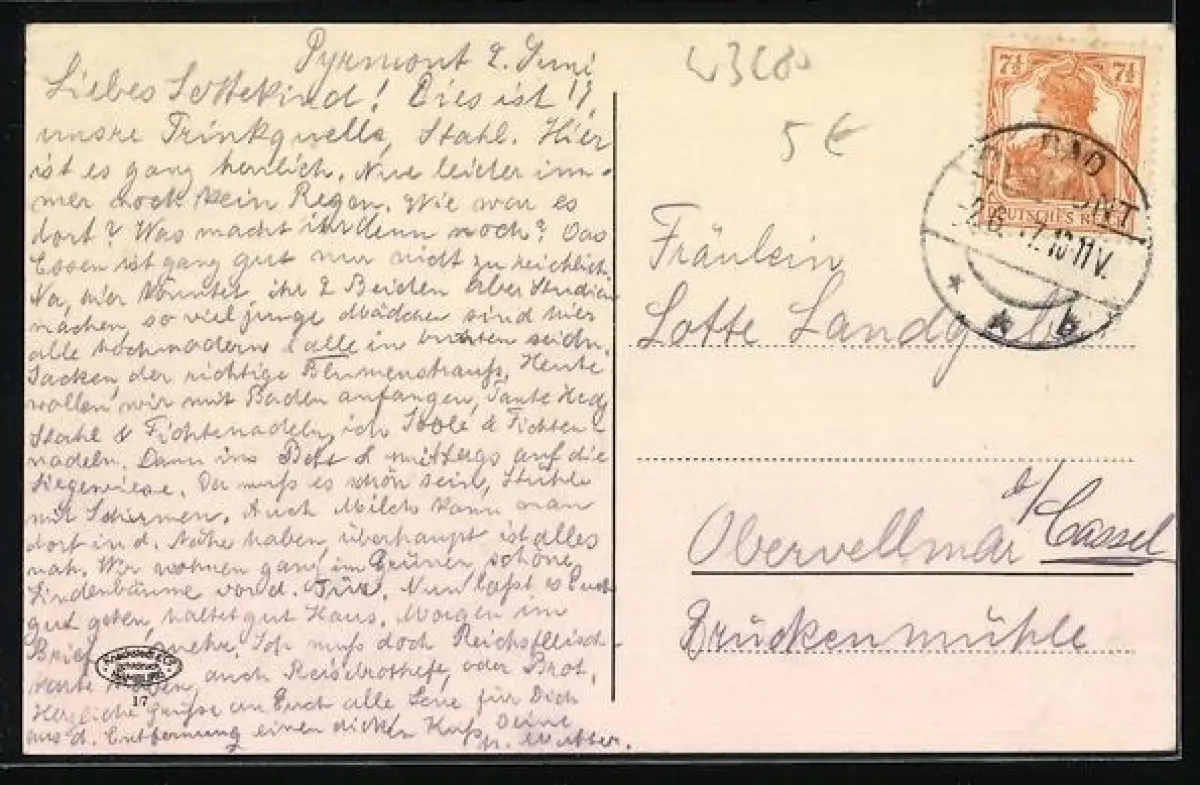 Pyrmont 2. Juni 17.
Liebes Lottekind! Dies ist
unsre Trinkquelle, Stahl. Hier
ist es ganz herrlich. Nur leider im-
mer noch kein Regen. Wie war es
dort? Was macht ihr denn noch? Das
Essen ist ganz gut nur nicht zu reichlich.
Na, hier könntet ihr 2 Beiden aber Studien
machen, so viel junge Mädchen sind hier
alle hochmodern alle in bunten seidn.
Jacken, der richtige Blumenstrauß. Heute
wollen wir mit Baden anfangen, Tante Hedj
Stahl & Fichtenadeln, ich Soole & Fichten-
nadeln. Dann ins Bett & mittags auf die
Liegewiese. Da muß es schön sein, Stühle
mit Schirmen. Auch Milch kann man
dort in d. Nähe haben, überhaupt ist alles
nah. Wir wohnen ganz im Grünen, schöne
Lindenbäume vor d. Tür. Nun laßt es Euch
gut gehen, haltet gut Haus. Morgen im
Brief mehr. Ich muß doch Reichsfleisch-
karte haben, auch Reisebrothefte, oder Brot.
Herzliche Grüße an Euch alle Lene für Dich
aus d. Entfernung einen dicken Kuß Deine
Mutter.
Knackstedt & Co
Lichtdruck
HAMBURG
17
5 €
7½ 7½
DEUTSCHES REICH
BAD
PYRMONT
-2.6.17.10-11V.
* * b
Fräulein
Lotte Landgrebe
Obervellmar b/Cassel
Brückenmühle